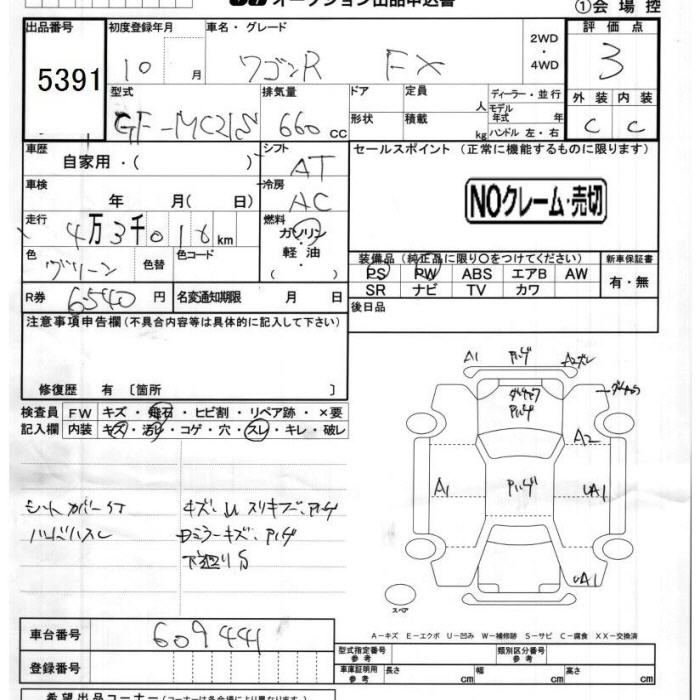 オークション出品申込書
①会場控
出品番号 初度登録年月 車名・グレード 2WD・4WD 評価点
5391 10 月 ワゴンR FX 3
型式 排気量 ドア 定員 人 ディーラー・並行 外装 内装
GF-MC21S 660 cc 形状 積載 kg モデル年式 年 ハンドル 左・右 C C
車歴 自家用・( ) シフト AT セールスポイント (正常に機能するものに限ります)
車検 年 月( 日) 冷房 AC
NOクレーム・売切
走行 4万3千016km 燃料 ガソリン・軽油・( )
色 グリーン 色替 色コード
装備品 (純正品に限り○をつけてください) 新車保証書
PS PW ABS エアB AW 有・無
SR ナビ TV カワ
R券 6540円 名変通知期限 月 日
後日品
注意事項申告欄(不具合内容等は具体的に記入して下さい)
修復歴 有 〔箇所 〕
検査員 FW キズ・飛石・ヒビ割・リペア跡・×要
記入欄 内装 キズ・汚レ・コゲ・穴・スレ・キレ・破レ
A1 A2
A2
A1 UA1
UA1
シートカバー
スペア
A-キズ E-エクボ U-凹み W-補修跡 S-サビ C-腐食 XX-交換済
車台番号 609441
型式指定番号 参考 類別区分番号 参考
登録番号
車庫証明用 参考 長さ cm 幅 cm 高さ cm
希望出品コーナー (コーナーは各会場により異なります)